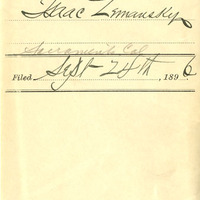 Isaac Zemansky,
Sacramento Cal
Filed Sept 24th, 1896